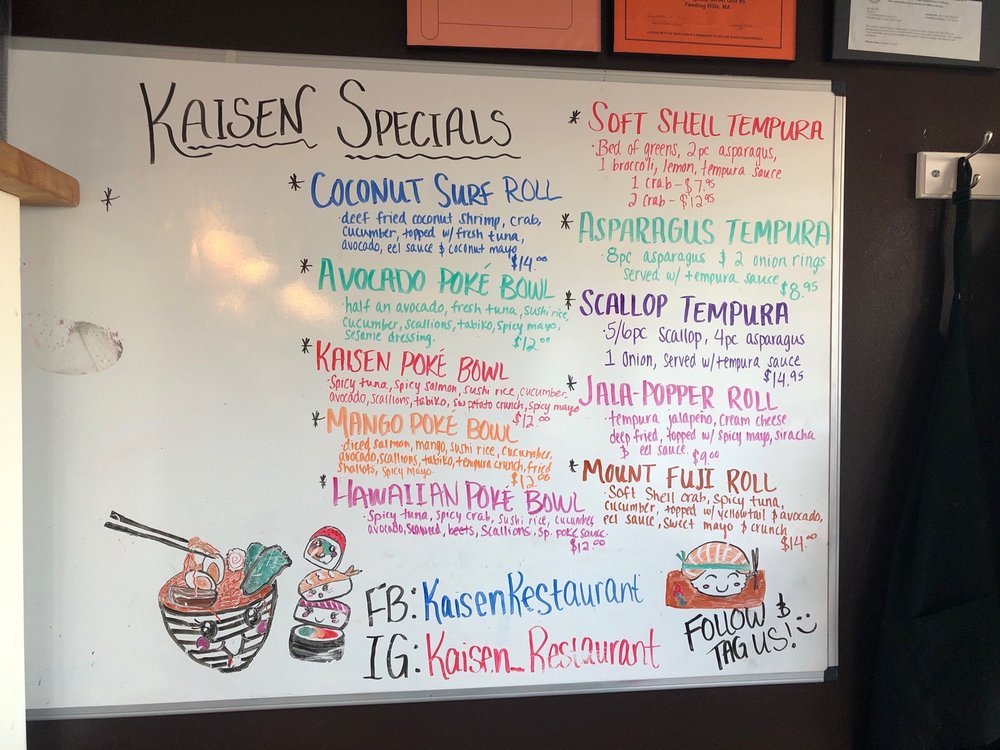 Feeding Hills, MA
KAISEN SPECIALS
*
* COCONUT SURF ROLL
· deef fried coconut shrimp, crab,
cucumber, topped w/ fresh tuna,
avocado, eel sauce & coconut mayo
$14.00
* AVOCADO POKÉ BOWL
· half an avocado, fresh tuna, sushi rice,
cucumber, scallions, tabiko, spicy mayo,
sesame dressing. $12.00
* KAISEN POKÉ BOWL
· Spicy tuna, spicy salmon, sushi rice, cucumber,
avocado, scallions, tabiko, sw potato crunch, spicy mayo
$12.00
* MANGO POKÉ BOWL
· diced salmon, mango, sushi rice, cucumber,
avocado, scallions, tabiko, tempura crunch, fried
shallots, spicy mayo. $12.00
* HAWAIIAN POKÉ BOWL
· Spicy tuna, spicy crab, sushi rice, cucumber,
avocado, seaweed, beets, scallions, sp. poke sauce.
$12.00
* SOFT SHELL TEMPURA
· Bed of greens, 2pc asparagus,
1 broccoli, lemon, tempura sauce
1 crab - $7.95
2 crab - $12.95
* ASPARAGUS TEMPURA
· 8pc asparagus & 2 onion rings
served w/ tempura sauce
$8.95
* SCALLOP TEMPURA
· 5/6pc scallop, 4pc asparagus
1 onion, served w/ tempura sauce
$14.95
* JALA-POPPER ROLL
· tempura jalapeño, cream cheese
deep fried, topped w/ spicy mayo, siracha
& eel sauce. $9.00
* MOUNT FUJI ROLL
· Soft shell crab, spicy tuna,
cucumber, topped w/ yellowtail & avocado,
eel sauce, sweet mayo & crunch
$14.00
FB: KaisenRestaurant
IG: Kaisen_Restaurant
FOLLOW &
TAG US! :)